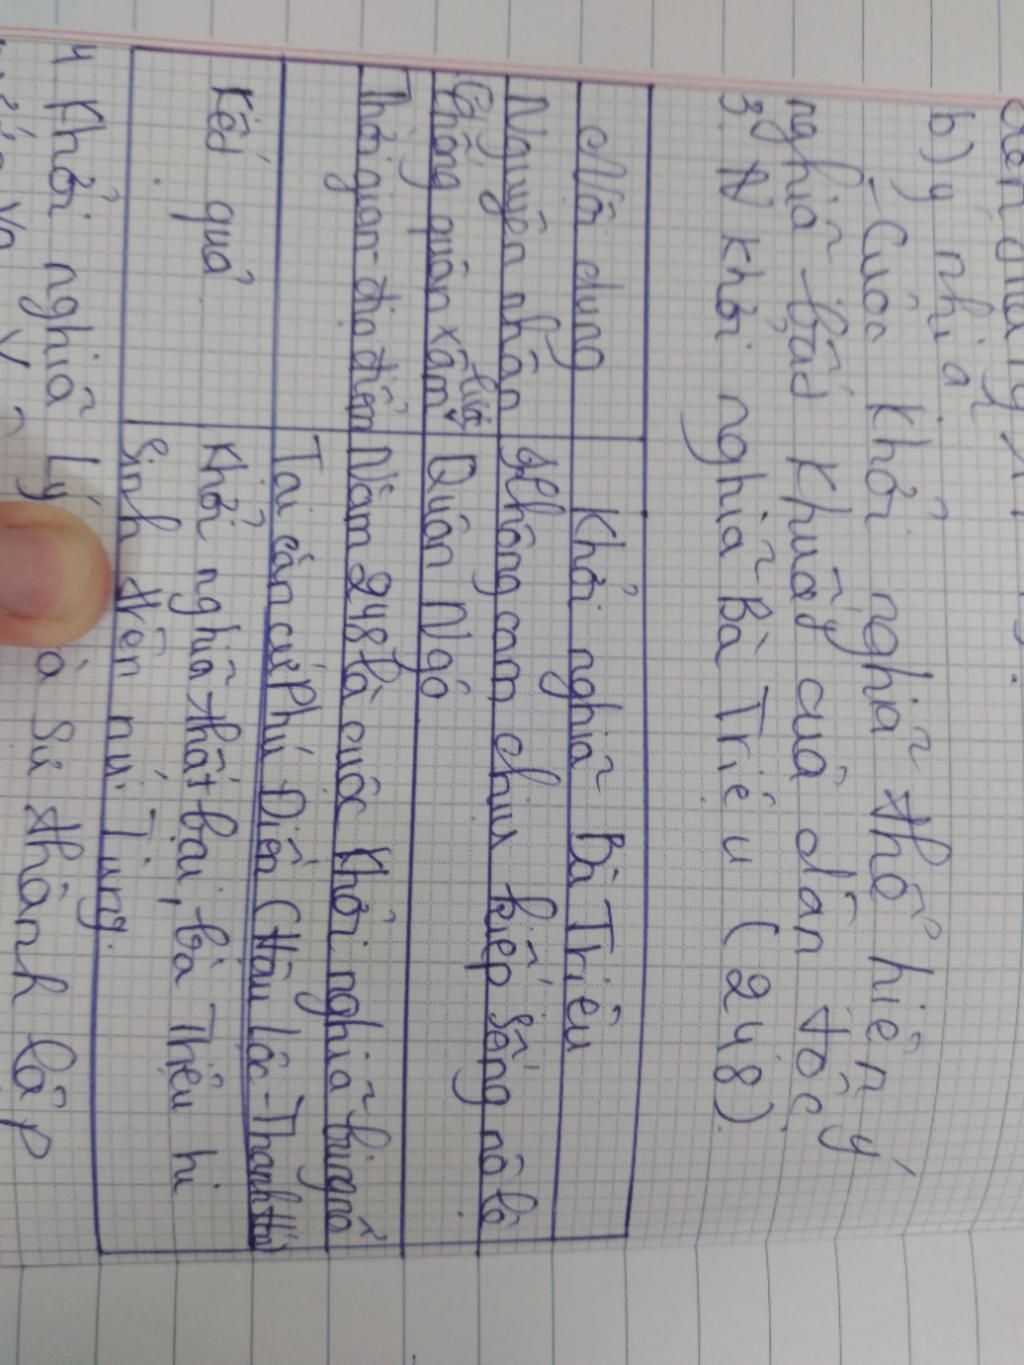 b) ý nghĩa
- Cuộc khởi nghĩa thể hiện ý
nghĩa bất khuất của dân tộc
3. N khởi nghĩa Bà Triệu (248)
Nội dung
Khởi nghĩa Bà Triệu
Nguyên nhân
Không cam chịu kiếp sống nô lệ
Chống quân xâm lược
Quân Ngô
Thời gian - địa điểm
Năm 248 là cuộc khởi nghĩa bùng nổ
Tại căn cứ Phú Điền (Hậu Lộc - Thanh Hóa)
Kết quả
Khởi nghĩa thất bại, bà Triệu hi
Sinh trên núi Tùng.
4 Khởi nghĩa Lý
à sự thành lập